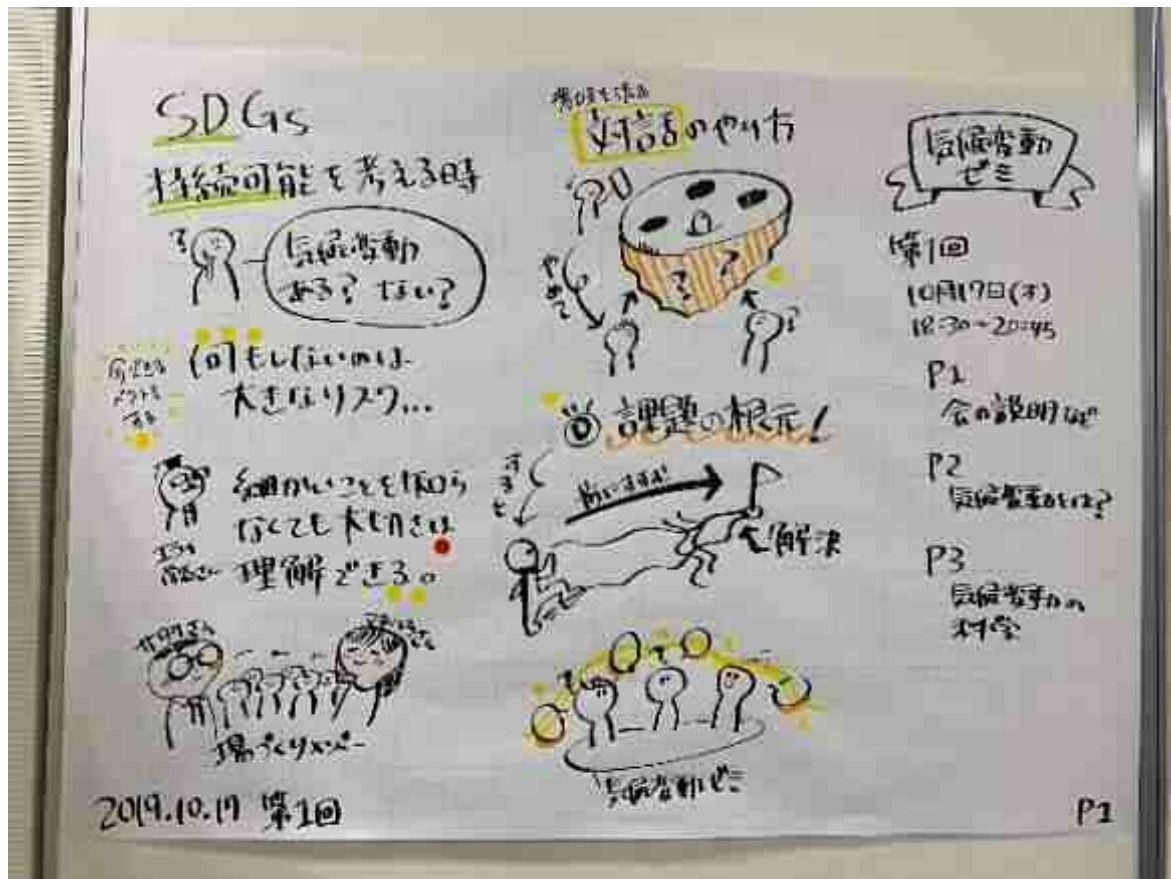 SDGs
持続可能を考える時
気候変動
ある？ ない？
何もしないのは
大きなリスク…
細かいことを知ら
なくても大切さは
理解できる。
場づくりメンバー
2019.10.17 第1回
対話のやり方
やめて
？ ？
課題の根元！
すると
解決
気候変動ゼミ
気候変動
ゼミ
第1回
10月17日(木)
18:30~20:45
P1
会の説明など
P2
気候変動とは？
P3
気候変動の
科学
P1